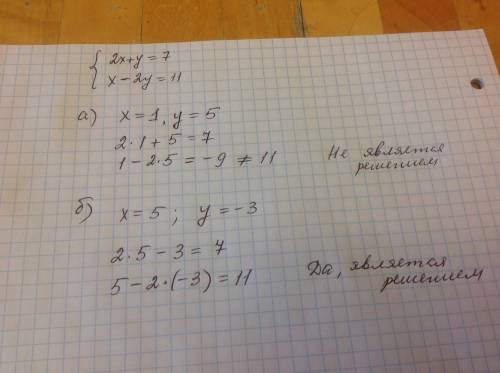 2x+y=7
x-2y=11
а) x=1, y=5
2·1+5=7
1-2·5=-9≠11
Не является
решением
б) x=5; y=-3
2·5-3=7
5-2·(-3)=11
Да, является
решением